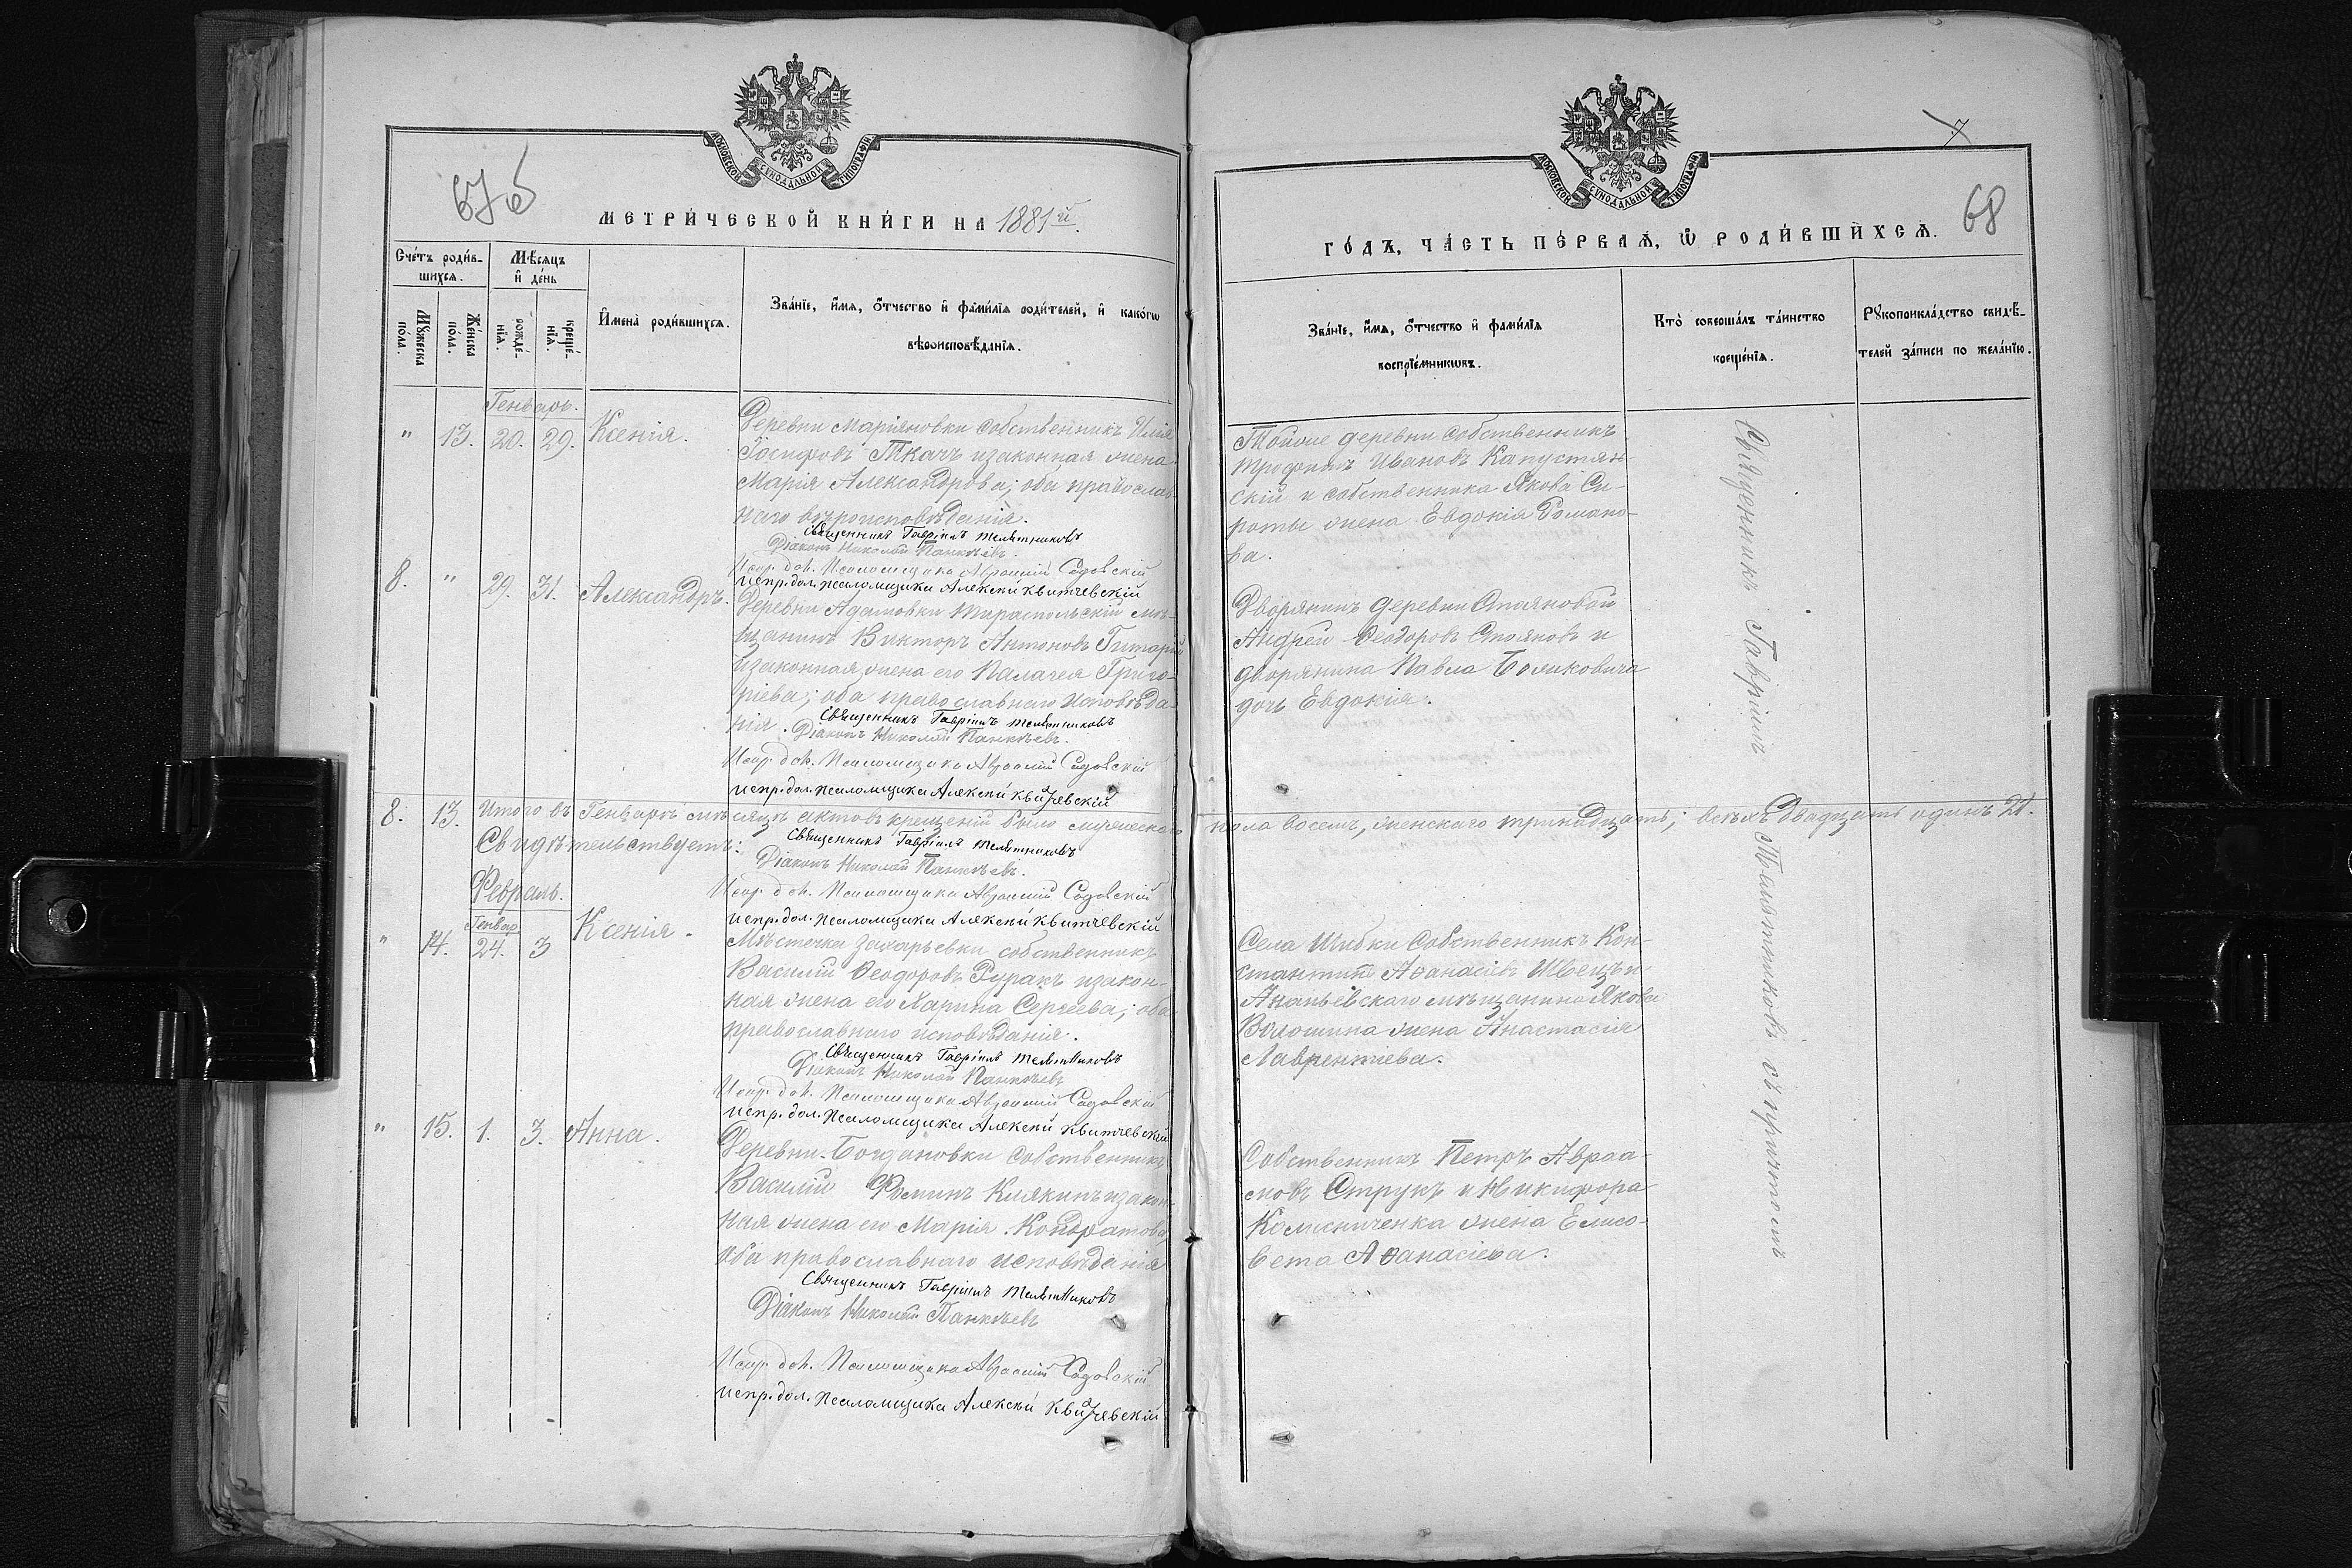 МОСКОВСКОЙ СѴНОДАЛЬНОЙ ТИПОГРАФІИ
67 б
МЕТРИ́ЧЕСКОЙ КНИ́ГИ НА 1881й.
Сче́тъ роди́в-
шихся.
Мѣ́сяцъ
и҆ де́нь
Мꙋ́жеска
по́ла.
Же́нска
по́ла.
рожде́-
нїя.
креще́-
нїя.
И҆мена̀ роди́вшихся.
Зва́нїе, и҆́мя, ѻ҆́тчество и҆ фами́лїя роди́телей, и҆ како́гѡ
вѣроисповѣ́данїя.
Генварь.
" 13. 20. 29. Ксенія.
Деревни Маріяновки собственникъ Илія
Іосифовъ Ткачъ и законная жена
Марія Александрова; оба православ-
наго вѣроисповѣданія.
Священникъ Гавріилъ Мельниковъ
Діаконъ Николай Панкѣевъ.
Испр. дол. Псаломщика Авраамій Садовскій
испр. дол. псаломщика Алексѣй Квитчевскій
8. " 29. 31. Александръ.
Деревни Адамовки Тираспольскій мѣ-
щанинъ Викторъ Антоновъ Гитарій
и законная жена его Палагея Григо-
ріева; оба православнаго исповѣда-
нія. Священникъ Гавріилъ Мельниковъ
Діаконъ Николай Панкѣевъ.
Испр. дол. Псаломщика Авраамій Садовскій
испр. дол. псаломщика Алексѣй Квитчевскій
8. 13. Итого въ Генварѣ мѣсяцѣ актовъ крещеній было мужескаго
Свидѣтельствуетъ: Священникъ Гавріилъ Мельниковъ
Діаконъ Николай Панкѣевъ.
Испр. дол. Псаломщика Авраамій Садовскій
испр. дол. псаломщика Алексѣй Квитчевскій
Февраль.
Генвар
" 14. 24. 3 Ксенія.
Мѣстечка Захарьевки собственникъ
Василій Ѳеодоровъ Руракъ и закон-
ная жена его Харина Сергеева; оба
православнаго исповѣданія.
Священникъ Гавріилъ Мельниковъ
Діаконъ Николай Панкѣевъ
Испр. дол. Псаломщика Авраамій Садовскій
испр. дол. псаломщика Алексѣй Квитчевскій
" 15. 1. 3. Анна.
Деревни Богдановки собственникъ
Василій Фоминъ Клякинъ и закон-
ная жена его Марія Кондратова,
оба православнаго исповѣданія
Священникъ Гавріилъ Мельниковъ
Діаконъ Николай Панкѣевъ
Испр. дол. Псаломщика Авраамій Садовскій
испр. дол. псаломщика Алексѣй Квитчевскій
МОСКОВСКОЙ СѴНОДАЛЬНОЙ ТИПОГРАФІИ
7
68
ГО́ДЪ, ЧА́СТЬ ПЕ́РВАЯ, Ѡ҆ РОДИ́ВШИХСЯ.
Зва́нїе, и҆́мя, ѻ҆́тчество и҆ фами́лїя
воспрїе́мникѡвъ.
Кто̀ соверша́лъ та́инство
креще́нїя.
Рꙋкоприкла́дство свидѣ́-
телей за́писи по жела́нїю.
Тойже деревни собственникъ
Трофимъ Ивановъ Капустян-
скій и собственника Якова Си-
роты жена Евдокія Романо-
ва.
Дворянинъ деревни Стояновой
Андрей Ѳеодоровъ Стояновъ и
дворянина Павла Боликовича
дочь Евдокія.
пола восемь, женскаго тринадцать; всѣхъ двадцать одинъ 21.
Села Шибки собственникъ Кон-
стантинъ Аѳанасіевъ Швецъ и
Ананьевскаго мѣщанина Якова
Волошина жена Анастасія
Лаврентіева.
Собственникъ Петръ Авраа-
мовъ Струкъ и Никифора
Колесниченка жена Елисо-
вета Аѳанасіева.
Священникъ Гавріилъ Мельниковъ съ причтомъ